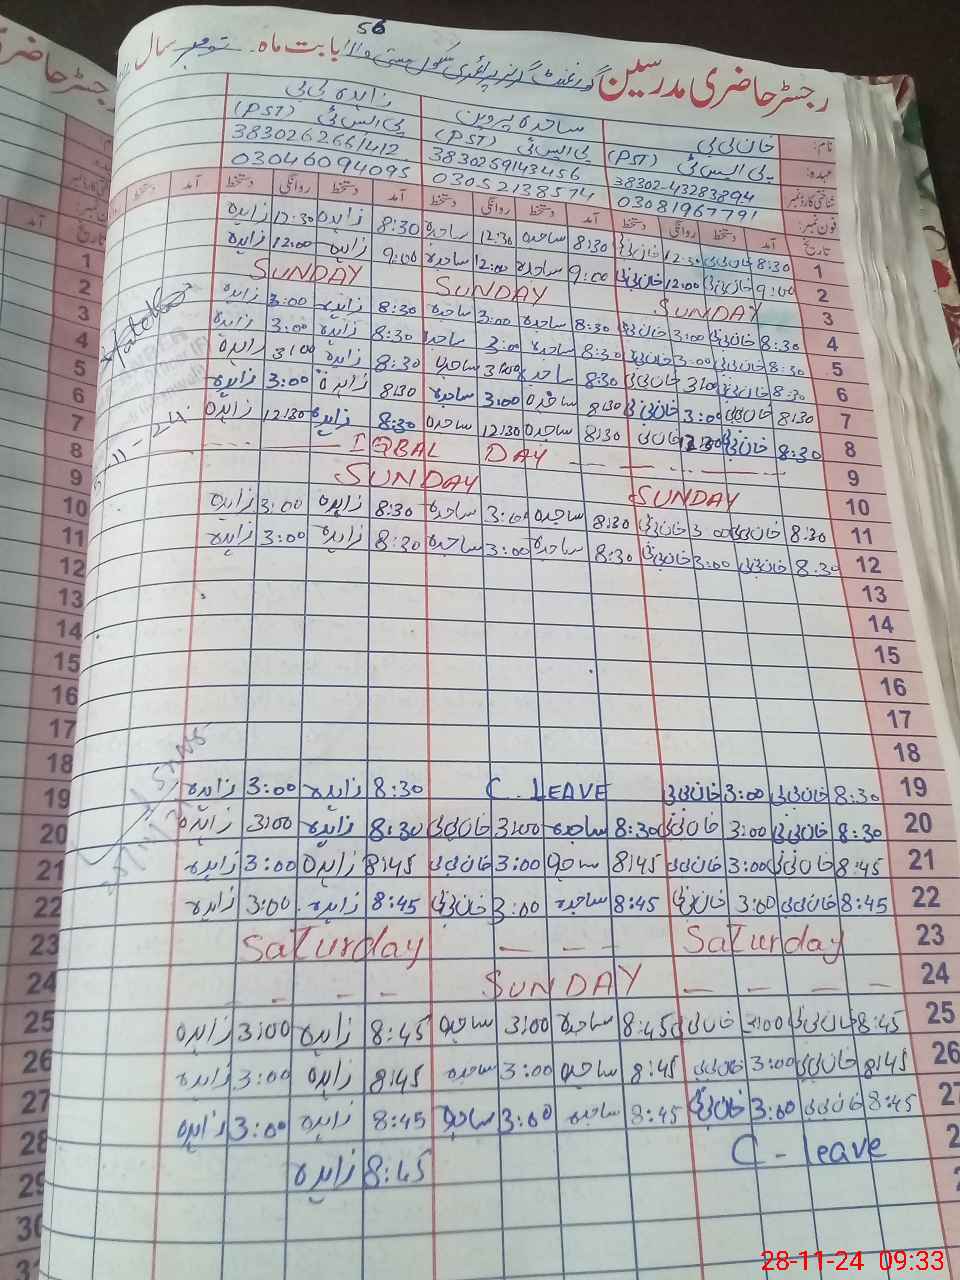 56
رجسٹر حاضری مدرسین گورنمنٹ گرلز پرائمری سکول بابت ماہ نومبر سال
نام: خان بی بی ساجدہ پروین زاہدہ بی بی
عہدہ: پی ایس ٹی (PST) پی ایس ٹی (PST) پی ایس ٹی (PST)
شناختی کارڈ نمبر 38302-43283894 3830269143456 3830262661412
فون نمبر: 03081967791 03052138574 03046094095
تاریخ آمد دستخط روانگی دستخط آمد دستخط روانگی دستخط آمد دستخط روانگی دستخط آمد دستخط
1 8:30 خان بی بی 12:30 خان بی بی 8:30 ساجدہ 12:30 ساجدہ 8:30 زاہدہ 12:30 زاہدہ 1
2 9:00 خان بی بی 12:00 خان بی بی 9:00 ساجدہ 12:00 ساجدہ 9:00 زاہدہ 12:00 زاہدہ 2
3 SUNDAY SUNDAY SUNDAY 3
4 8:30 خان بی بی 3:00 خان بی بی 8:30 ساجدہ 3:00 ساجدہ 8:30 زاہدہ 3:00 زاہدہ 4
5 8:30 خان بی بی 3:00 خان بی بی 8:30 ساجدہ 3:00 ساجدہ 8:30 زاہدہ 3:00 زاہدہ 5
6 8:30 خان بی بی 3:00 خان بی بی 8:30 ساجدہ 3:00 ساجدہ 8:30 زاہدہ 3:00 زاہدہ 6
7 8:30 خان بی بی 3:00 خان بی بی 8:30 ساجدہ 3:00 ساجدہ 8:30 زاہدہ 3:00 زاہدہ 7
8 8:30 خان بی بی 12:30 خان بی بی 8:30 ساجدہ 12:30 ساجدہ 8:30 زاہدہ 12:30 زاہدہ 8
9 IQBAL DAY 9
10 SUNDAY SUNDAY 10
11 8:30 خان بی بی 3:00 خان بی بی 8:30 ساجدہ 3:00 ساجدہ 8:30 زاہدہ 3:00 زاہدہ 11
12 8:30 خان بی بی 3:00 خان بی بی 8:30 ساجدہ 3:00 ساجدہ 8:30 زاہدہ 3:00 زاہدہ 12
13 13
14 14
15 15
16 16
17 17
18 18
19 8:30 خان بی بی 3:00 خان بی بی C. LEAVE 8:30 زاہدہ 3:00 زاہدہ 19
20 8:30 خان بی بی 3:00 خان بی بی 8:30 ساجدہ 3:00 خان بی بی 8:30 زاہدہ 3:00 زاہدہ 20
21 8:45 خان بی بی 3:00 خان بی بی 8:45 ساجدہ 3:00 خان بی بی 8:45 زاہدہ 3:00 زاہدہ 21
22 8:45 خان بی بی 3:00 خان بی بی 8:45 ساجدہ 3:00 خان بی بی 8:45 زاہدہ 3:00 زاہدہ 22
23 Saturday Saturday 23
24 SUNDAY 24
25 8:45 خان بی بی 3:00 خان بی بی 8:45 ساجدہ 3:00 ساجدہ 8:45 زاہدہ 3:00 زاہدہ 25
26 8:45 خان بی بی 3:00 خان بی بی 8:45 ساجدہ 3:00 ساجدہ 8:45 زاہدہ 3:00 زاہدہ 26
27 8:45 خان بی بی 3:00 خان بی بی 8:45 ساجدہ 3:00 ساجدہ 8:45 زاہدہ 3:00 زاہدہ 27
C-leave 8:45 زاہدہ 28
29
30
28-11-24 09:33